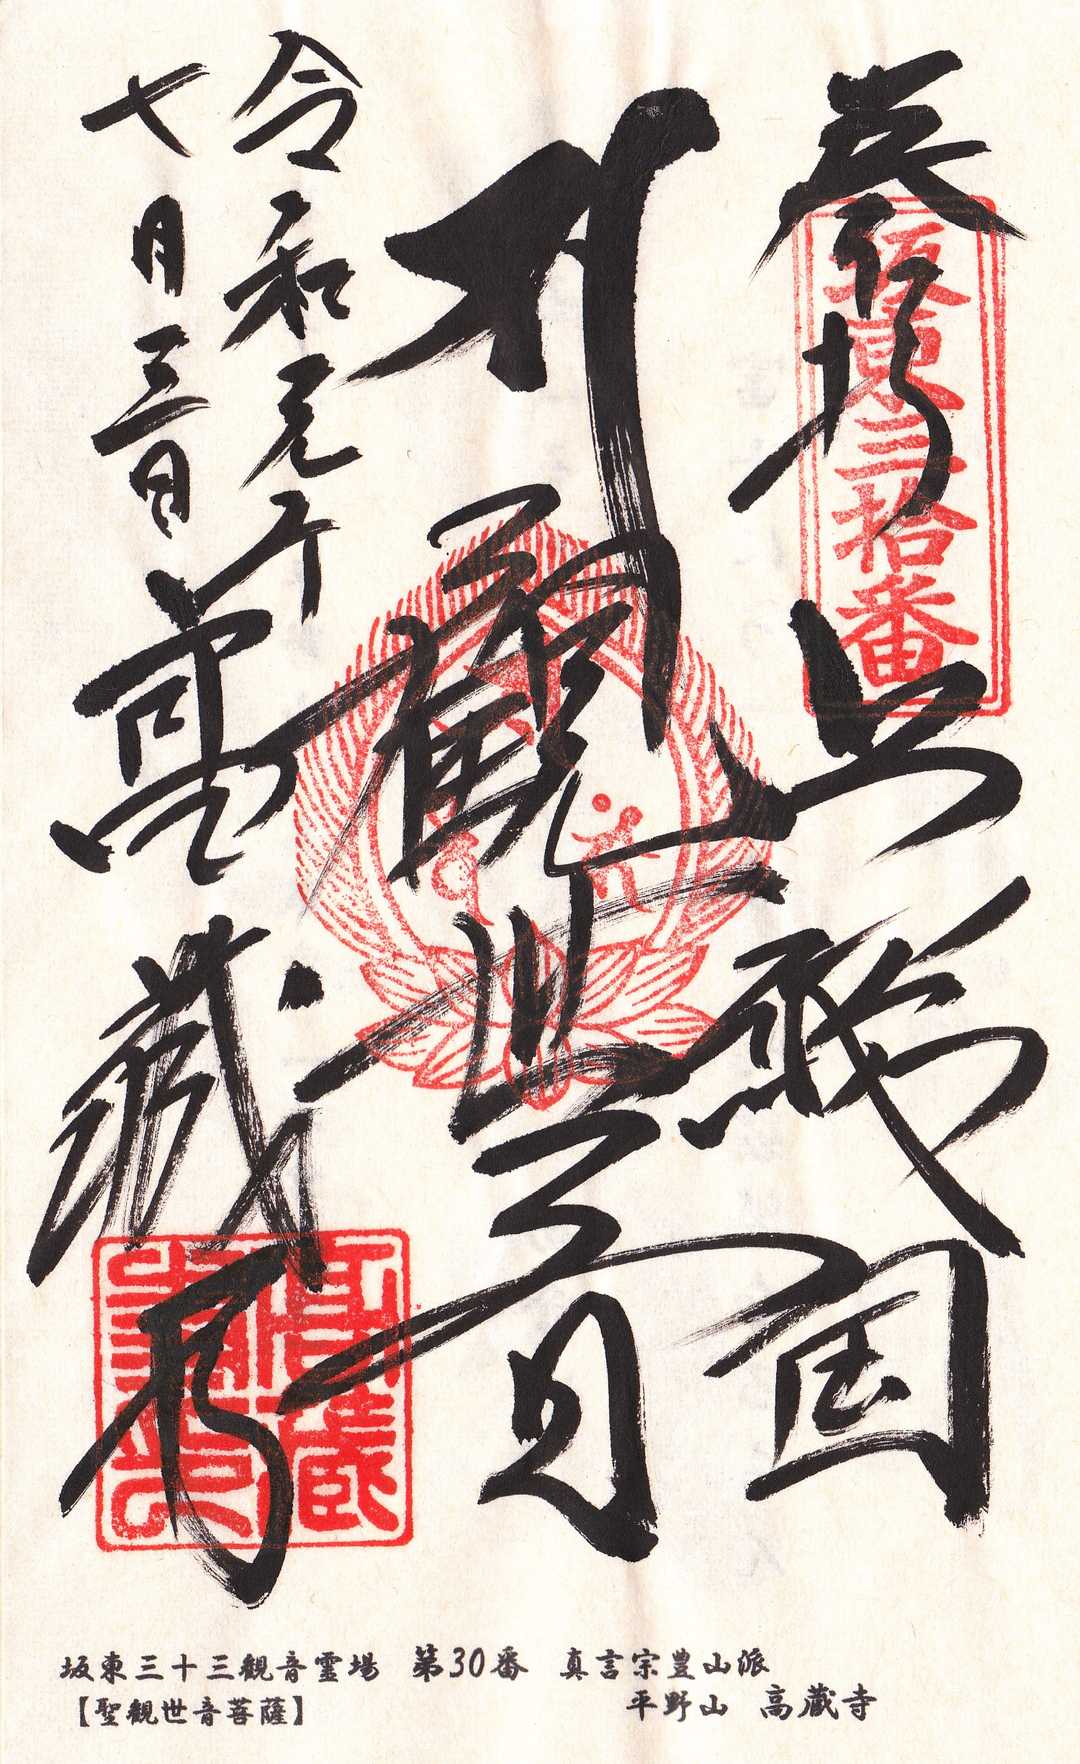 奉拝
坂東三拾番
上総国
観世音
令和元年
七月三日
高蔵寺
坂東三十三観音霊場　第30番　真言宗豊山派
【聖観世音菩薩】　平野山　高蔵寺